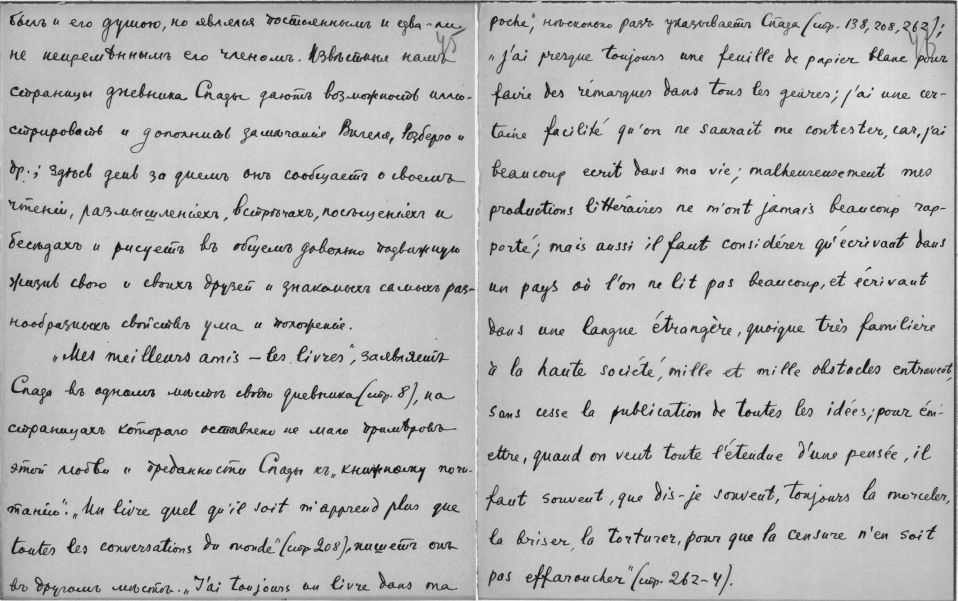 былъ и его душою, но являлся постояннымъ и едва-ли
45
не непремѣннымъ его членомъ. Извѣстныя намъ
страницы дневника Спады даютъ возможность иллю-
стрировать и дополнить замѣчанія Вигеля, Розберга и
др.; здѣсь день за днемъ онъ сообщаетъ о своемъ
чтеніи, размышленіяхъ, встрѣчахъ, посѣщеніяхъ и
бесѣдахъ и рисуетъ въ общемъ довольно подвижную
жизнь свою и своихъ друзей и знакомыхъ самыхъ раз-
нообразныхъ свойствъ ума и положенія.
„Mes meilleurs amis – les livres", заявляетъ
Спада въ одномъ мѣстѣ своего дневника (стр. 8), на
страницахъ котораго оставлено не мало примѣровъ
этой любви и преданности Спады къ „книжному почи-
танію": „Un livre quel qu'il soit m'apprend plus que
toutes les conversations du monde" (стр 208), пишетъ онъ
въ другомъ мѣстѣ. „J'ai toujours un livre dans ma
poche", нѣсколько разъ указываетъ Спада (стр. 138, 208, 262);
„j'ai presque toujours une feuille de papier blanc pour
faire des rémarques dans tous les genres; j'ai une cer-
taine facilité qu'on ne saurait me contester, car, j'ai
beaucoup ecrit dans ma vie; malheureusement mes
productions littéraires ne m'ont jamais beaucoup rap-
porté; mais aussi il faut considérer qu'écrivant dans
un pays où l'on ne lit pas beaucoup, et écrivant
dans une langue étrangère, quoique très familière
à la haute société, mille et mille obstacles entravent,
sans cesse la publication de toutes les idées; pour ém-
ettre, quand on veut toute l'étendue d'une pensée, il
faut souvent, que dis-je souvent, toujours la morceler,
la briser, la torturer, pour que la censure n'en soit
pas effaroucher" (стр. 262-4).